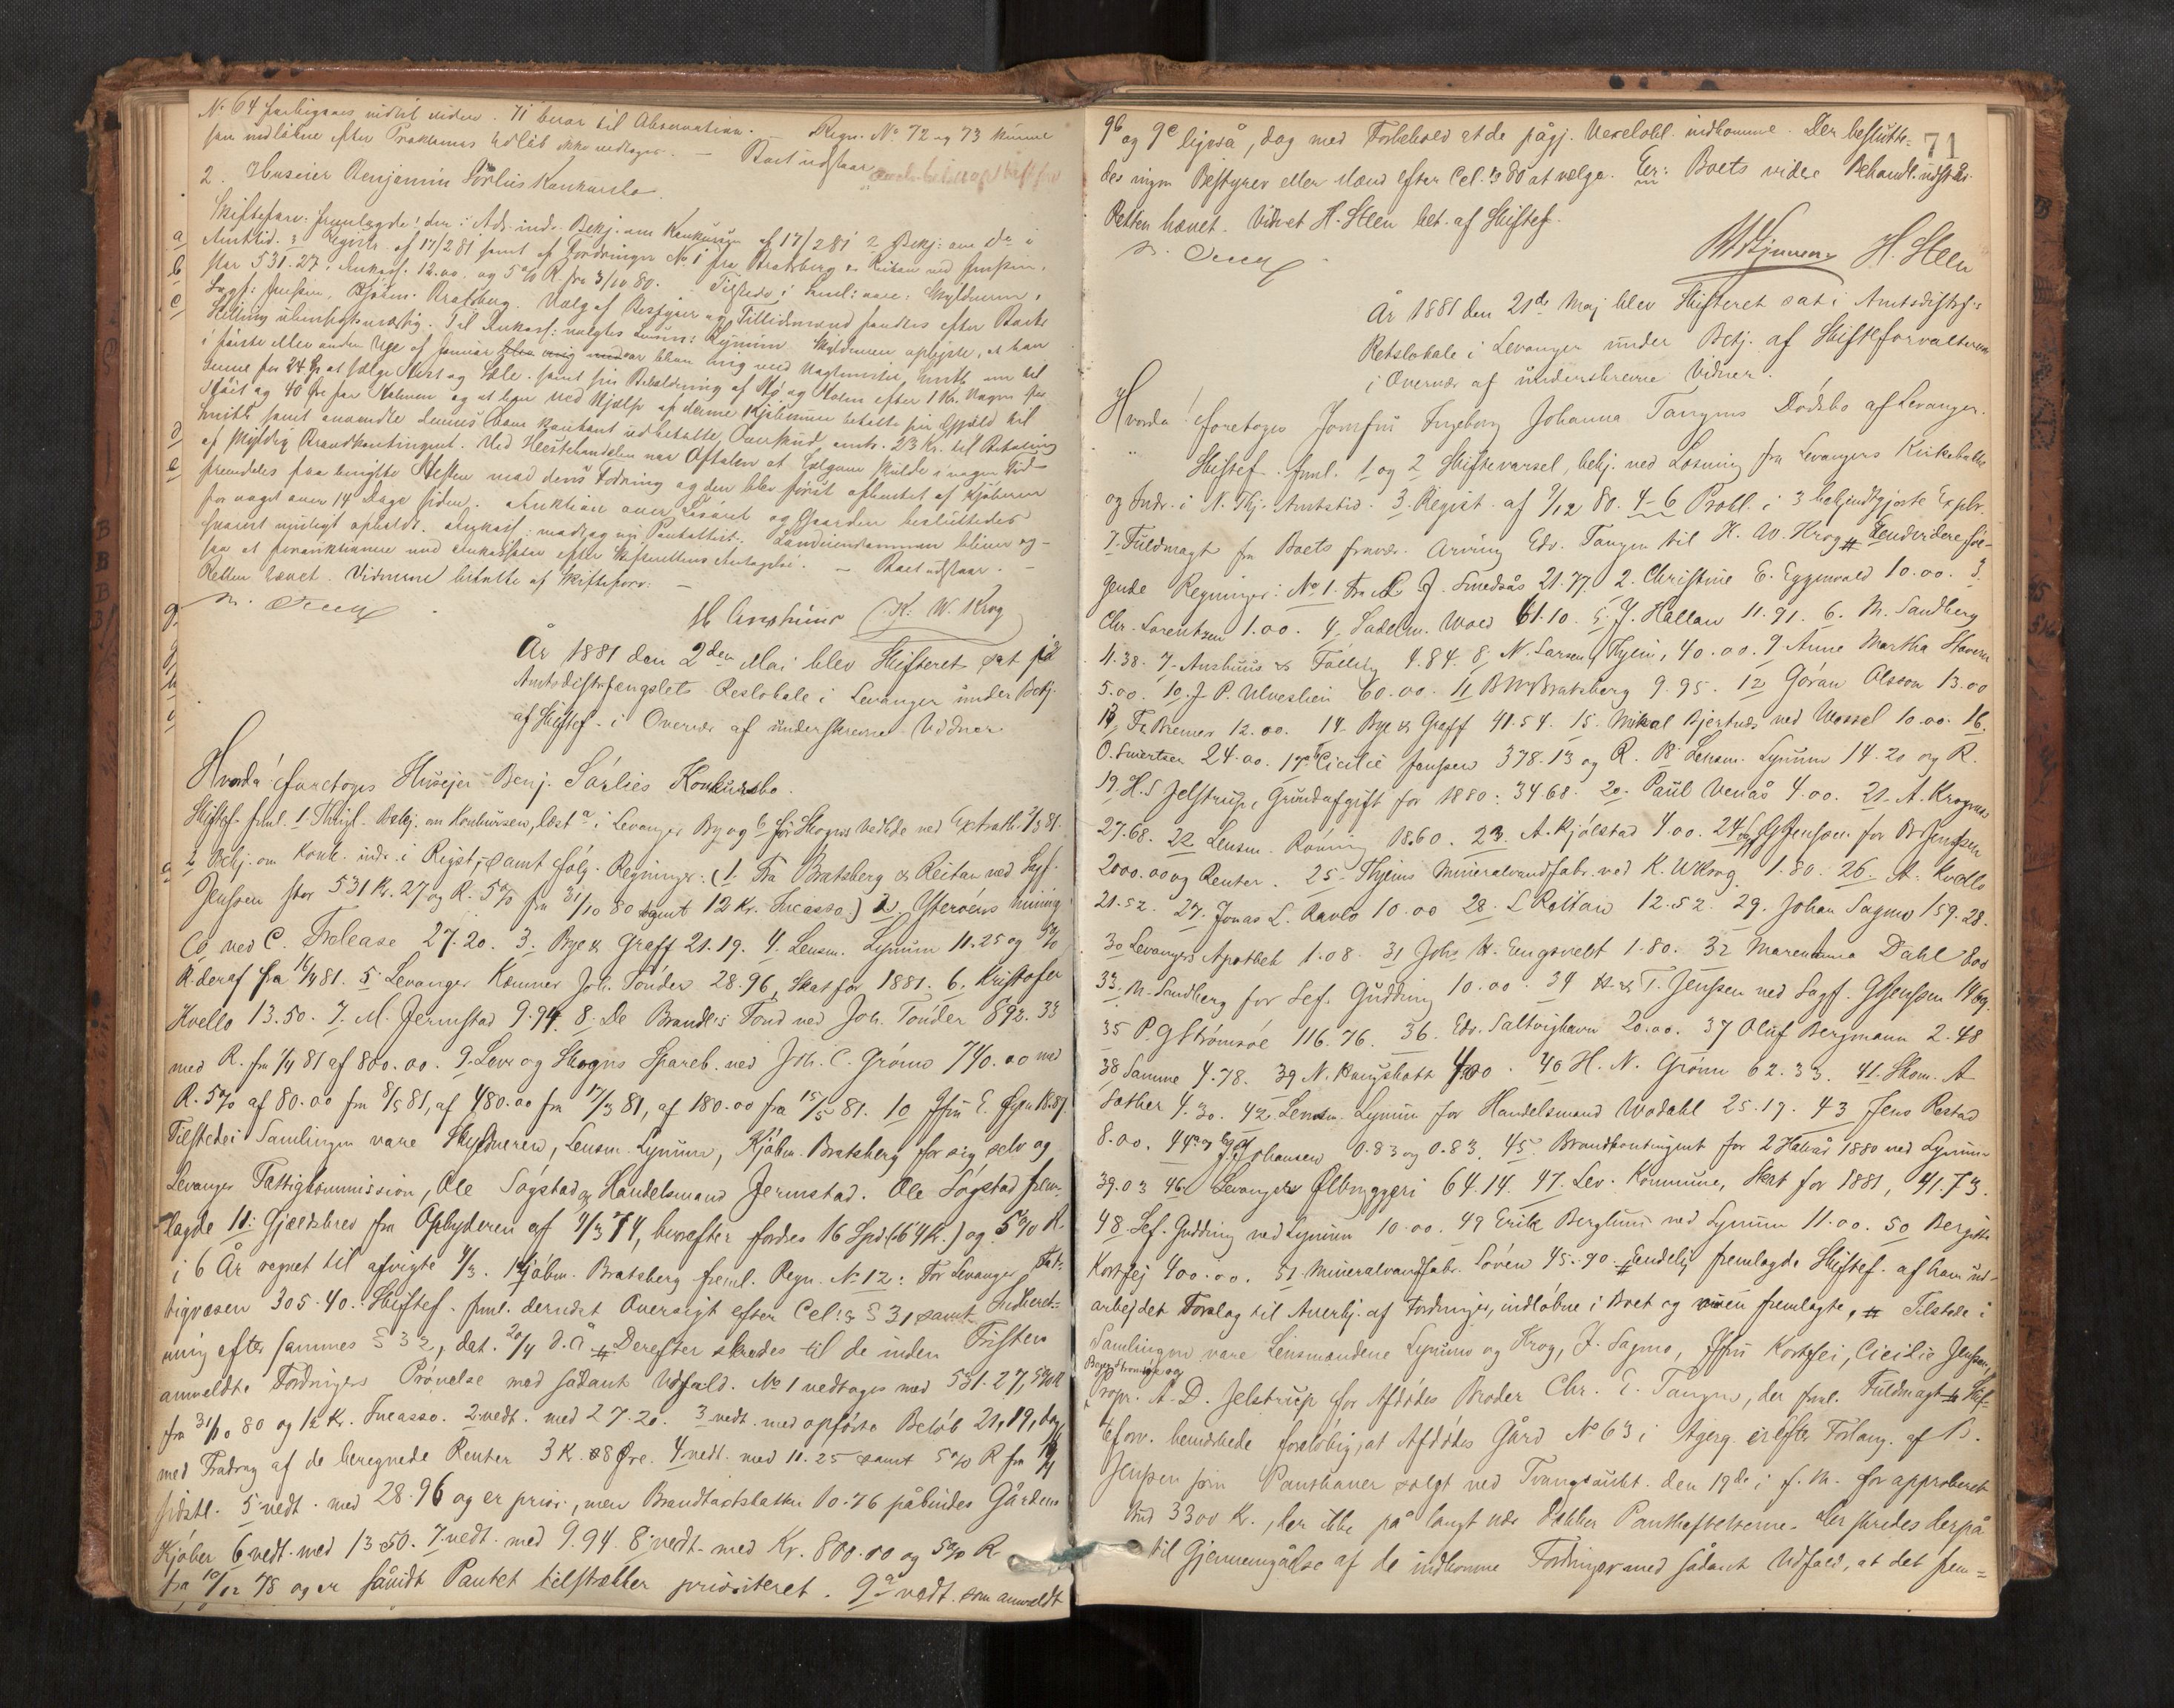 No 64 forbigaaes indtil videre. 71 beror til Observation. — Regn. No 72 og 73 kunne
som indkomne efter Proklamas Udløb ikke vedtages. — Boet udstaar
2. Huseier Benjamin Sørlies Konkursbo
Skifteforv. fremlagde: den i Adr. indr. Bekj. om Konkursen af 17/2 81 2 Bekj. om do i
Amtstid. 3 Registr. af 17/2 81 samt af Fordringer No 1 fra Bratsberg & Reitan ved Jenssen,
stor 531.27, Inkass. 12.00. og 5% R. fra 31/10 80. Tilstede i Saml. vare: Skyldneren,
Sagf. Jenssen, Kjøbm. Bratsberg. Valg af Bestyrer og Tillidsmænd fandtes efter Boets
Stilling uhensigtsmæssig. Til Inkass. valgtes Lensm. Lynum. Skyldneren oplyste, at han
i første eller anden Uge af Januar blev enig med Vagtmester Smith om til
denne for 24 Kr at sælge Hest og Sele samt sin Beholdning af Hø og Halm efter 1 Kr. Vogen for
Høit og 40 Øre for Halmen og at han ved Hjælp af denne Kjøbesum betalte sin Gjæld til
Smith samt anvendte dennes ham kontant udbetalte Overskud, omtr. 23 Kr. til Betaling
af skyldig Brandkontingent. Ved Hestehandelen var Aftalen at Sælgeren skulde i nogen Tid
fremdeles faa benytte Hesten mod dens Fodring og den blev først afhentet af Kjøberen
for noget over 14 Dage siden. Auktion over Løsøret og Gaarden besluttedes
snarest muligt afholdt. Inkass. modtog ny Pantattest.
Retten hævet. Vidnerne betalte af Skifteforv. —
H. Anshuus K. W. Krog
År 1881 den 2den Mai blev Skifteret sat på
Amtsdistr.fængslets Retslokale i Levanger under Betj.
af Skiftef. i Overvær af underskrevne Vidner
Hvorda! foretoges Huseier Benj. Sørlies Konkursbo.
Skiftef. freml. 1 Thingl. Bekj. om Konkursen, læst a i Levanger By og b for Skogns Vedkde ved Extrath. 2/3 81.
2 Bekj. om Konk. indr. i Regist., samt følg. Regninger: (1. Fra Bratsberg & Reitan ved Sagf.
Jenssen stor 531 Kr. 27 og R. 5% fra 31/10 80 samt 12 Kr. Incasso.) 2. Yterøens Mining
Co ved C. Trelease 27.20. 3. Bye & Graff 21.19. 4. Lensm. Lynum 11.25 og 5%
R. deraf fra 16/4 81. 5 Levanger Kæmner Joh. Tønder 28.96, Skat for 1881. 6. Kristofer
Kvello 13.50. 7. M. Jermstad 9.94. 8. De Brandl:s Fond ved Joh. Tønder 892.33
med R. fra 1/4 81 af 800.00. 9. Lev. og Skogns Spareb. ved Joh. C. Grømo 740.00 med
R. 5% af 80.00 fra 8/5 81, af 480.00 fra 17/3 81, af 180.00 fra 15/5 81. 10
Tilstede i Samlingen vare Skyldneren, Lensm. Lynum, Kjøbm. Bratsberg for sig selv og
Levanger Fattigkommission, Ole Søgstad og Handelsmand Jermstad. Ole Søgstad frem-
lagde 11: Gjældsbrev fra Opbyderen af 4/3 74, hvorefter fordres 16 Spd (64 Kr.) og 5% R.
i 6 År regnet til afvigte 4/3. Kjøbm. Bratsberg freml. Regn. No 12: For Levanger Fat-
tigvæsen 305.40. Skiftef. freml. derudst Oversigt efter Cel:s § 31 samt Indberet-
ning efter sammes § 32, dat. 20/4 d. Å. # Derefter skredes til de inden Fristen
anmeldte Fordringers Prøvelse med sådant Udfald. No 1 vedtoges med 531.27, 5% R
fra 31/10 80 og 12 Kr. Incasso. 2 vedt. med 27.20. 3 vedt. med opførte Beløb 21,19, dog
med Fradrag af de beregnede Renter 3 Kr. 88 Øre. 4 vedt. med 11.25 samt 5% R fra 16/4
sidstl. 5 vedt. med 28.96 og er prior., men Brandtaxtskatten 10.76 påhviler Gårdens
Kjøber 6 vedt. med 13.50. 7 vedt. med 9.94. 8 vedt. med Kr. 800.00 og 5% R
fra 10/12 78 og er såvidt Pantet tilstrækker prioriteret. 9a vedt. som anmeldt
71
9b og 9c ligeså, dog med Forbehold at de pågj. Vexelobl. indkomme. Der beslutte-
des ingen Bestyrer eller Mænd efter Cel.s § 80 at vælge. Eer: Boets videre Behandl. udstår.
Retten hævet. Vidnet H. Steen bet. af Skiftef.
H. Steen
År 1881 den 21de Maj blev Skifteret sat i Amtsdistr.s
Retslokale i Levanger under Betj. af Skifteforvalteren
i Overvær af underskrevne Vidner.
Hvorda! foretoges Jomfru Ingeborg Johanna Tangens Dødsbo af Levanger.
Skiftef. freml. 1 og 2 Skiftevarsel, bekj. ved Læsning fra Levangers Kirkebakke
og Indr. i N. Thj. Amtstid. 3. Regist. af 9/12 80. 4-6 Prokl. i 3 bekjendtgjorte Explr.
7. Fuldmagt fra Boets fravær. Arving Edv. Tangen til K. W. Krog # Endvidere føl-
gende Regninger: No 1. Fra J. Smedsås 21.77. 2. Christine E. Eggenvold 10.00. 3.
Chr. Lorentzen 1.00. 4. Sadelm. Wold 61.10 5. J. Hallan 11.91. 6. M. Sandberg
4.38. 7. Anshuus & Fålling 4.84. 8. N. Larsen Thyin, 40.00. 9. Anne Martha Stavern
5.00. 10. J. P. Ulveslien 60.00. 11 B W Bratsberg 9.95. 12 Gøran Olsson 13.00
13. Fr. Bremer 12.00. 14. Bye & Graff 41.54. 15. Mikal Bjertnæs ved Wessel 10.00. 16.
O. Smertsen 24.00. 17. Cicilie Jenssen 378.13 og R. 18. Lensm. Lynum 14.20 og R.
19. H. S. Jelstrup, Grundafgift for 1880: 34.68. 20. Paul Venås 4.00. 21. A. Krognæs
27.68. 22 Lensm. Røming 18.60. 23. A. Kjølstad 4.00. 24. G Jenssen for B Jenssen
2000.00 og Renter. 25. Thjems Mineralvandfabr. ved K. W Krog 1.80. 26. A. Kvello
21.52. 27. Jonas L. Ravlo 10.00 28. L Rostad 12.52. 29. Johan Sagmo 159.28.
30 Levangers Apothek 1.08. 31 Johs H. Engstvelt 1.80. 32 Maren Anna Dahl 8.00
33. M. Sandberg for Sef. Gudding 10.00. 34 H. & T. Jenssen ved Sagf. G Jenssen 14.69.
35 P. G Strømsøe 116.76. 36. Edv. Saltvighavn 20.00. 37 Oluf Bergmann 2.48
38 Samme 4.78. 39 N. Kongshatt 4.00. 40 H. N. Grønn 62.33. 41. Skom. A
Sæther 4.30. 42. Lensm. Lynum for Handelsmand Wodahl 25.19. 43 Jens Restad
8.00. 44 a og b J. Johansen 0.83 og 0.83. 45. Brandkontingent for 2 Halvår 1880 ved Lynum
39.03 46. Levangers Ølbryggeri 64.14. 47. Lev. Kommune, Skat for 1881, 41.73.
48. Sef. Gudding ved Lynum 10.00. 49 Erik Berglund ved Lynum 11.00. 50 Bergitte
Kortsej 400.00. 51 Mineralvandfabr. Søren 45.90. # Endelig fremlagde Skiftef. af ham ud-
arbejdet Forslag til Anerkj. af Fordringer, indløbne i Boet og fremlagte, # Tilstede i
Samlingen vare Lensmændene Lynum og Krog, J. Sagmo, Jfru Kortsej, Cicilie Jenssen,
A. D. Jelstrup for Afdødes Broder Chr. E. Tangen, der freml. Fuldmagt # Skif-
teforv. bemærkede foreløbig, at Afdødes Gård No 63 i Agerg. er efter Forlang. af B.
Jenssen som Panthaver solgt ved Tvangsaukt. den 19de i f. M. for approberet
Bud 3300 Kr., der ikke på langt nær dækker Panthæftelserne. Der skredes derpå
til Gjennemgåelse af de indkomne Fordringer med sådant Udfald, at det frem-